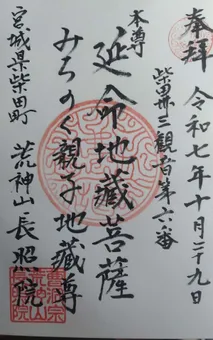 奉拝
令和七年十月二十九日
柴田三十三観音第六番
本尊
延命地蔵菩薩
みちのく親子地蔵尊
宮城県柴田町
荒神山長照院